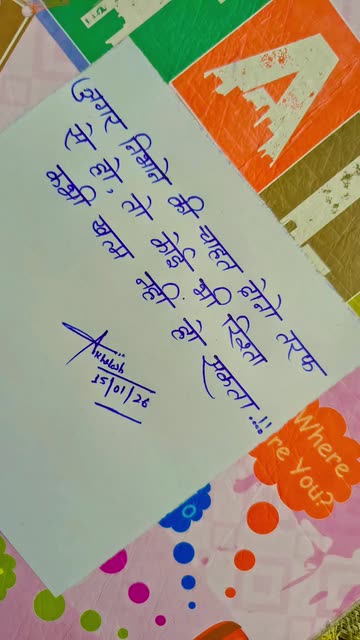 अगर निभाने की चाहत दोनो तरफ
से हो, तो कोई भी रिश्ता
कभी खत्म नहीं हो सकता !!!
Akhilesh
15/01/26
Where
are You?
A